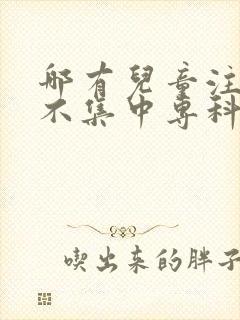 哪有兒童注
不集中專科
喫出来的胖子